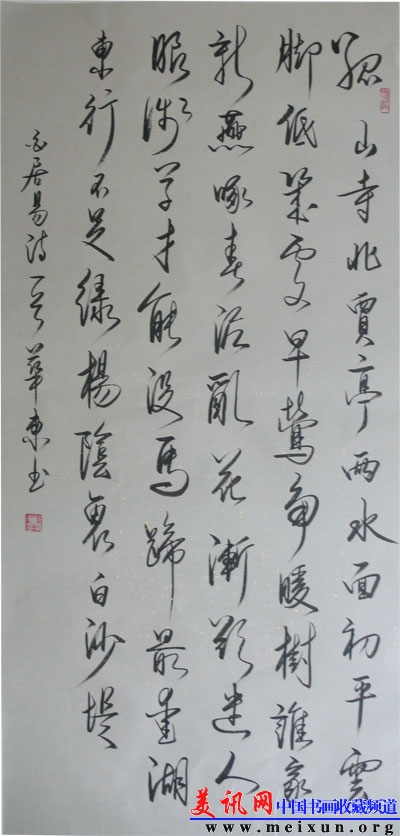 孤山寺北賈亭西水面初平雲
脚低幾處早鶯爭暖樹誰家
新燕啄春泥亂花漸欲迷人
眼淺草才能没馬蹄最愛湖
東行不足綠楊陰裏白沙堤
白居易诗一首 華東书
美讯网 中国书画收藏频道
www.meixun.org